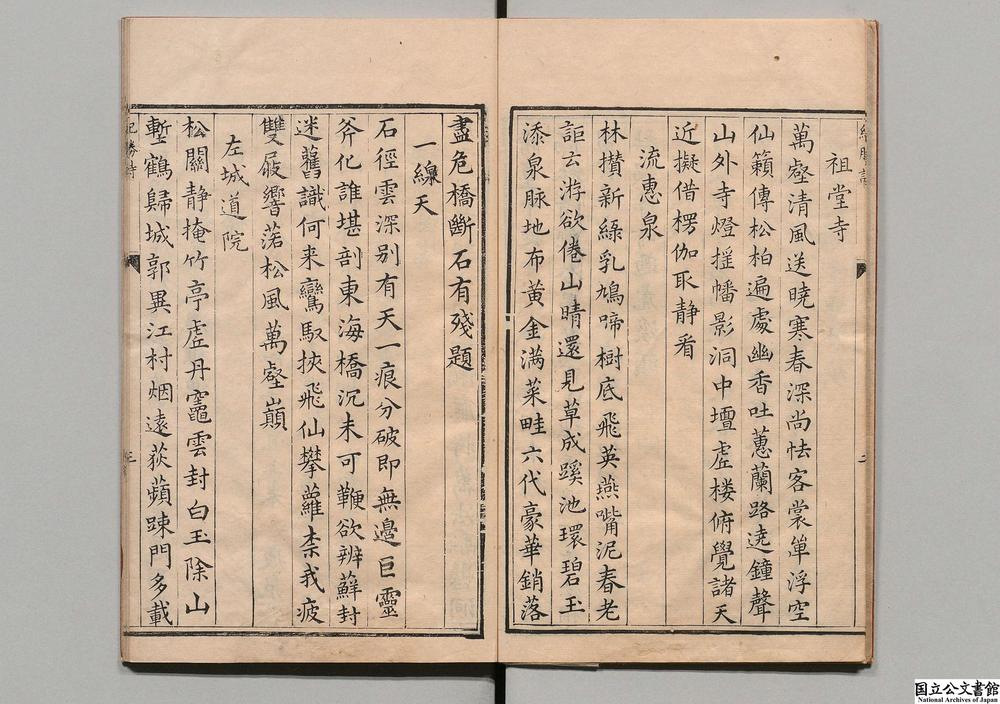 祖堂寺
萬壑清風送曉寒春深尚怯客裳單浮空
仙籟傳松柏遍處幽香吐蕙蘭路遶鐘聲
山外寺燈搖幡影洞中壇虛楼俯覺諸天
近擬借楞伽耴静看
流惠泉
林攅新綠乳鳩啼樹底飛英燕嘴泥春老
詎云游欲倦山晴還見草成蹊池環碧玉
添泉脉地布黄金满菜畦六代豪華銷落
盡危橋斷石有殘題
一線天
石徑雲深别有天一痕分破即無邊巨靈
斧化誰堪剖東海橋沉未可鞭欲辨蘚封
迷舊識何来鸞馭挾飛仙攀蘿柰我疲
雙屐響落松風萬壑巔
左城道院
松關静掩竹亭虛丹竈雲封白玉除山
塹鶴歸城郭異江村烟遠荻蘋踈門多載
記勝詩
国立公文書館
National Archives of Japan